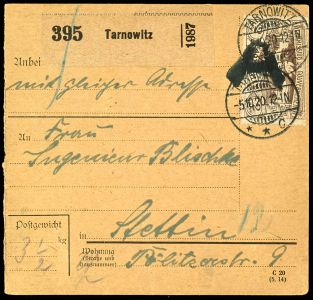 395 Tarnowitz 1987
TARNOWITZ
Anbei
mit gleicher Adresse
TARNOWITZ
-5.10.20.12-1N
* * c
An
Frau
Ingenieur
Postgewicht
3 1/2 kg
in Stettin
Wohnung
(Straße und
Hausnummer)
9
C 20
(5. 14)